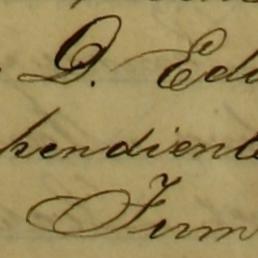 D. Edu
pendiente
Firm